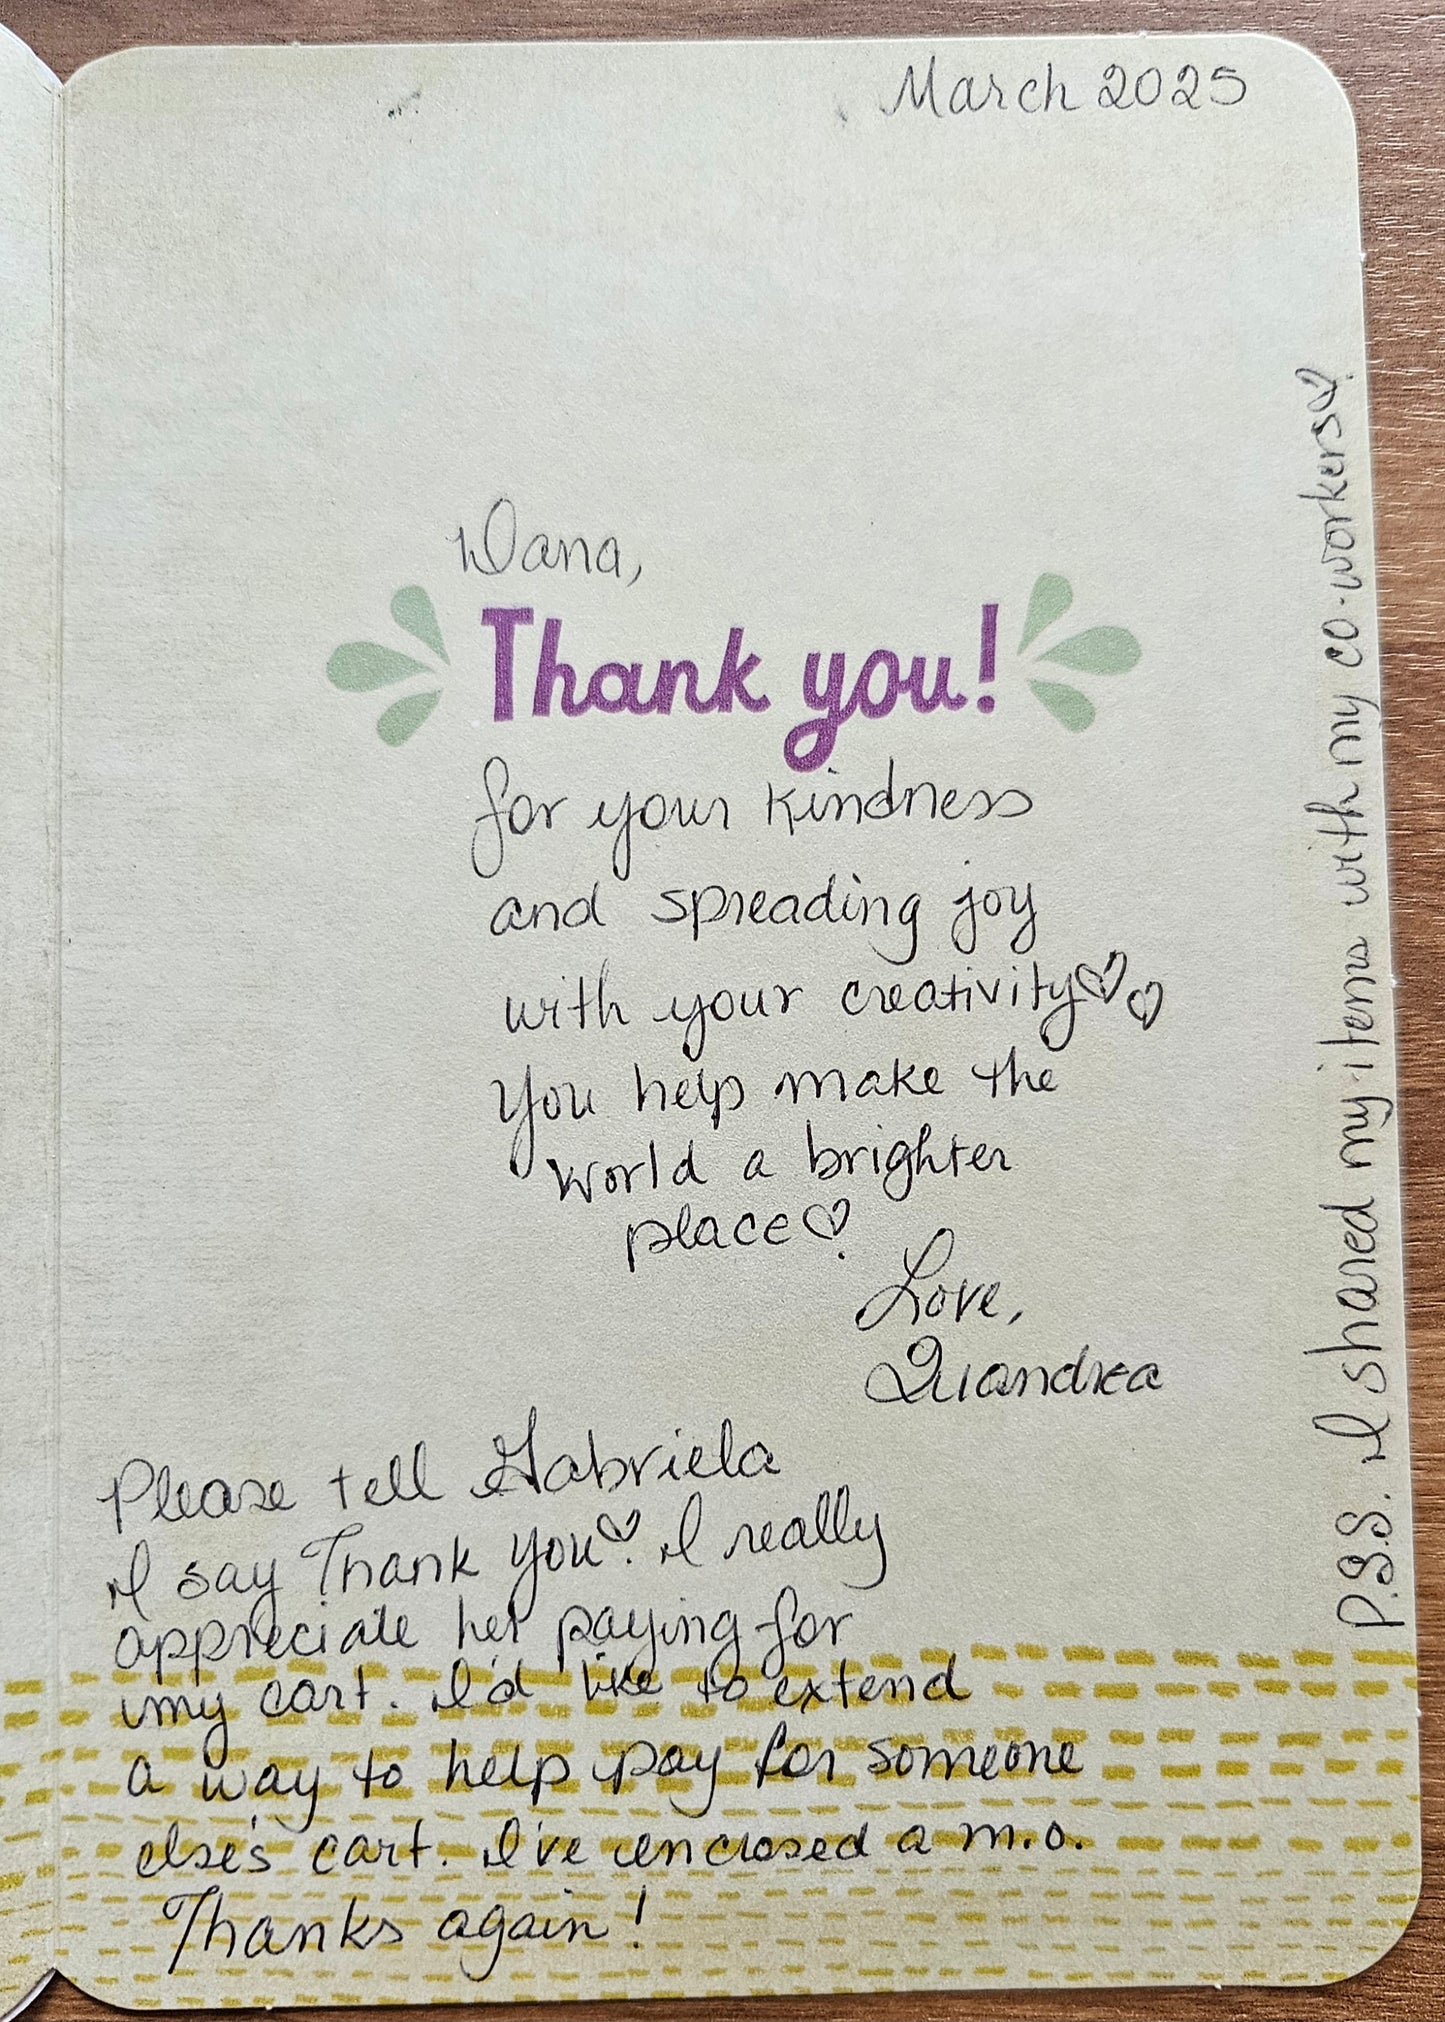 March 2025
Dana,
Thank you!
for your kindness
and spreading joy
with your creativity♡♡
You help make the
world a brighter
place♡.
Love,
Quandrea
Please tell Gabriela
I say Thank you♡. I really
appreciate her paying for
my cart. I'd like to extend
a way to help pay for someone
else's cart. I've enclosed a m.o.
Thanks again!
P.S.S. I shared my items with my co-workers♡.